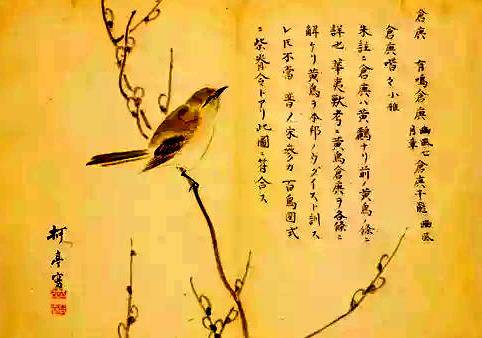 倉庚 有鳴倉庚 豳風七月章 倉庚于飛 豳風
倉庚喈々 小雅
朱註ニ倉庚ハ黄鸝ナリ前ノ黄鳥ノ條ニ
詳也 華夷獣考ニ黄鳥倉庚ヲ各條ニ
解ケリ黄鳥ヲ本邦ノウグイスト訓ス
レ𪜈不當 昔ノ宋 百鳥図式
ニ柴脊令トアリ此圖ニ符合ス
柯亭寫